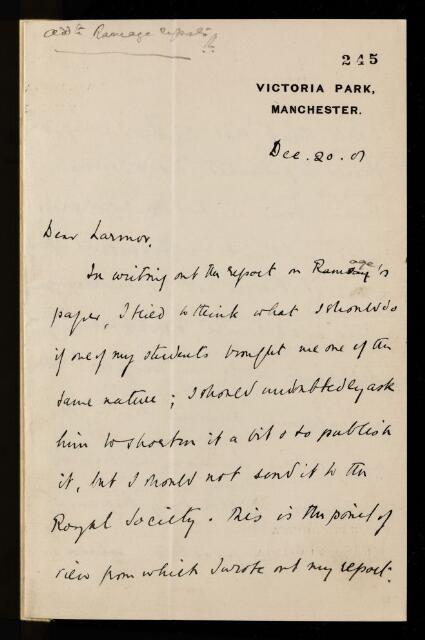 add Ramage report
245
VICTORIA PARK,
MANCHESTER.
Dec. 20. 01
Dear Larmor,
In writing out the report on Ramage's
paper, I tried to think what I should do
if one of my students brought me one of the
same nature; I should undoubtedly ask
him to shorten it a bit & to publish
it, but I should not send it to the
Royal Society. This is the point of
view from which I wrote out my report.